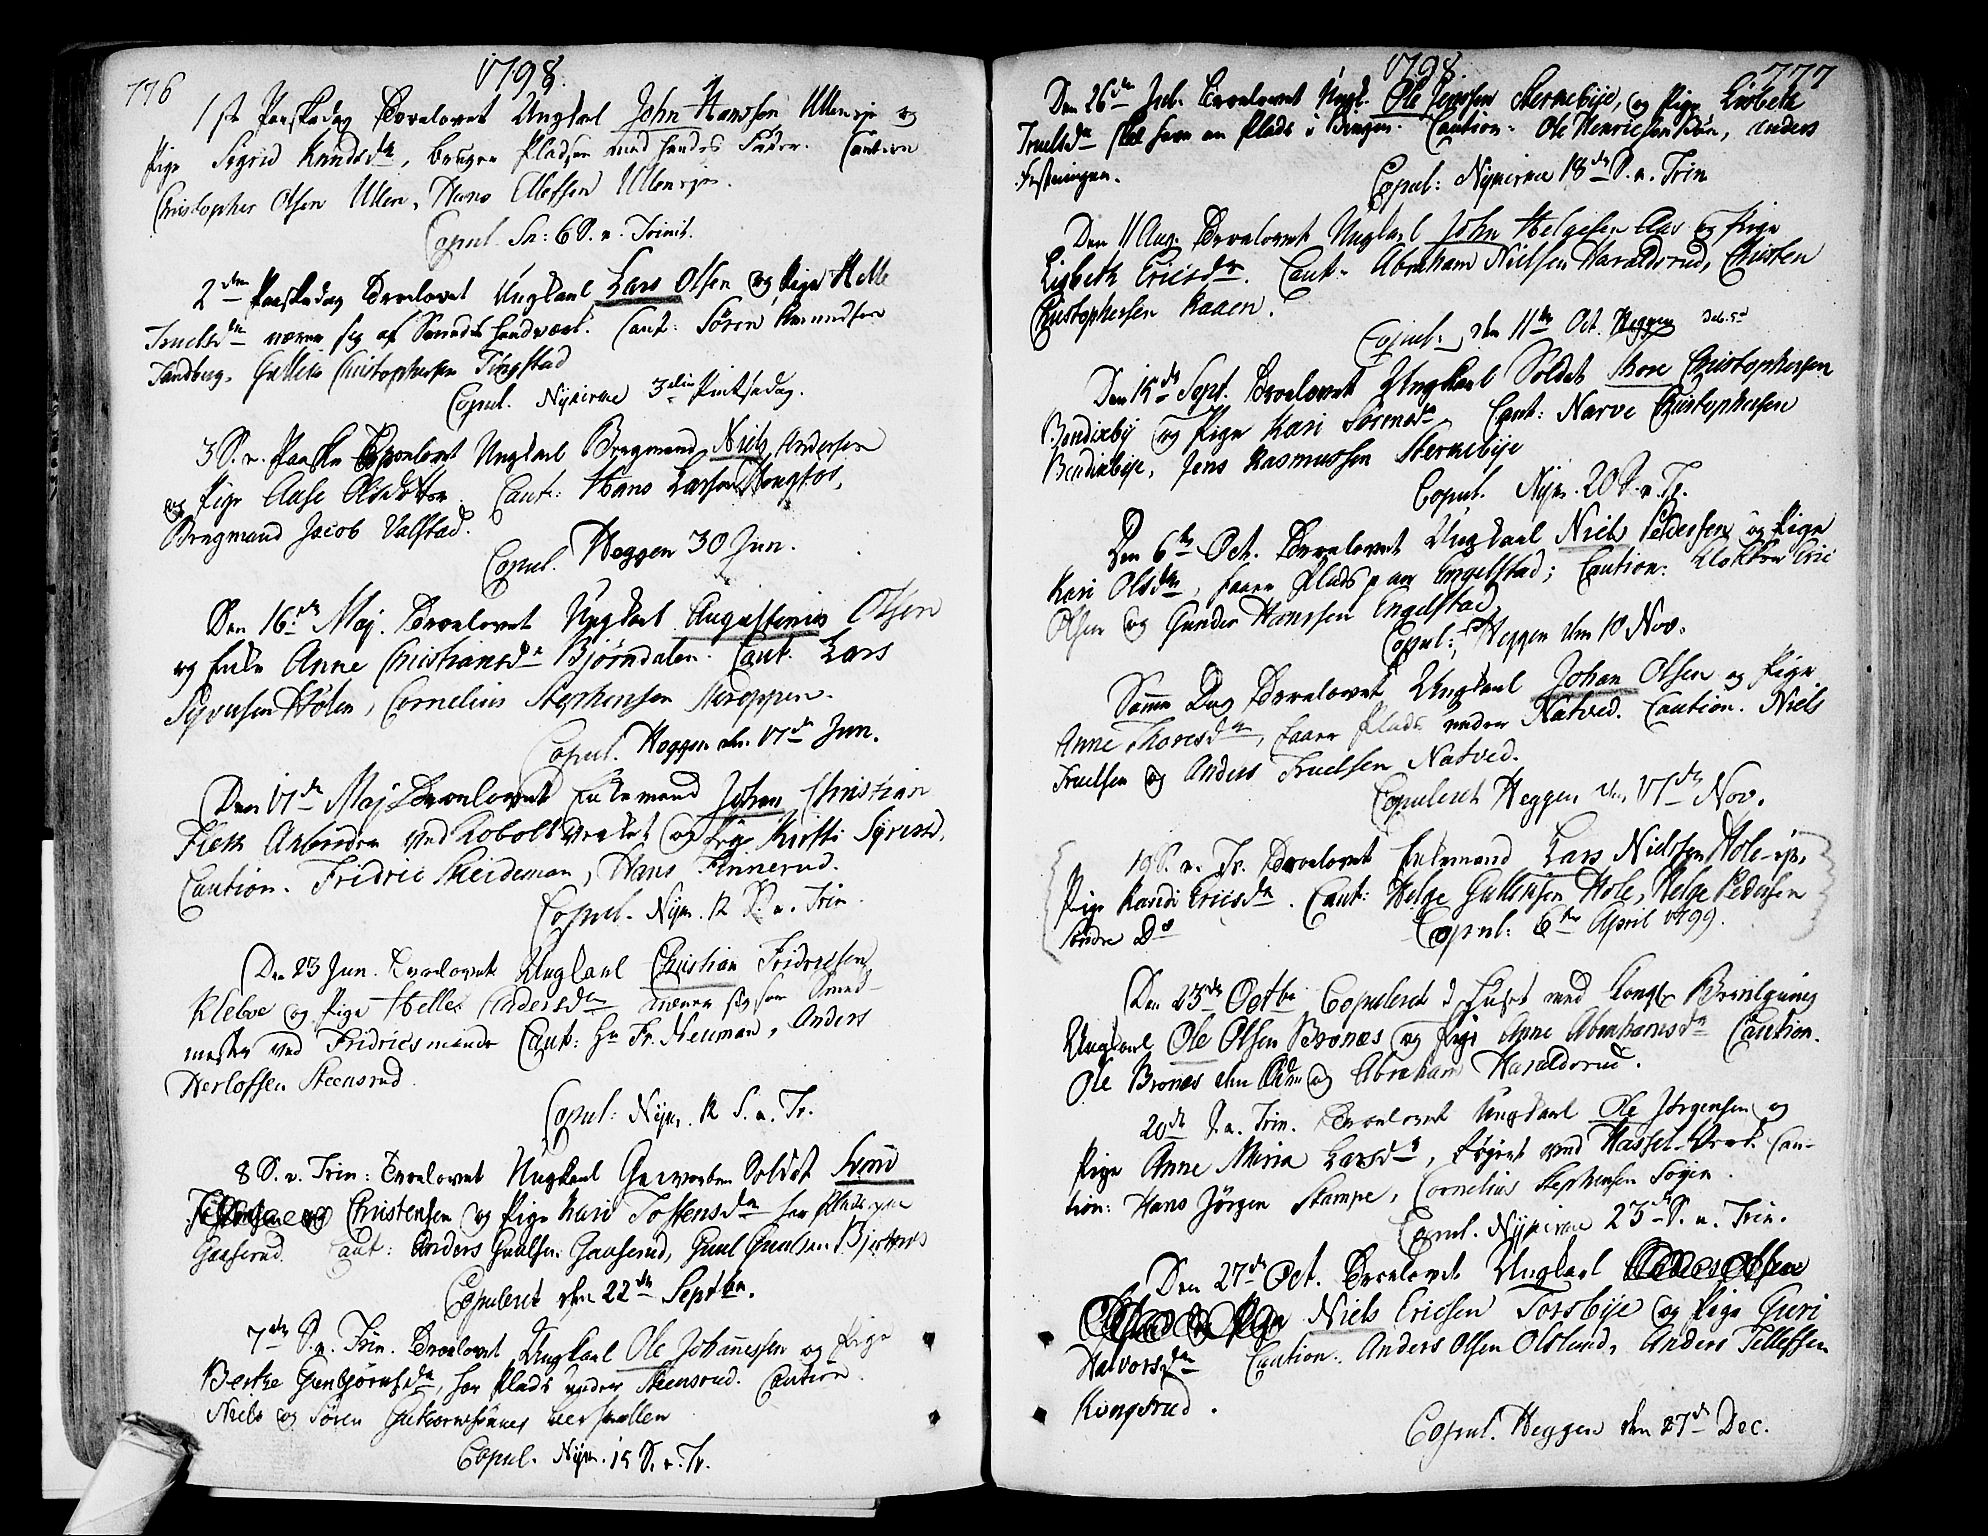 776
1798
1ste Paaskedag Trolovet Ungkarl John Hansson Ullen eje og
Pige Sigrid Knudsdr, bruger Pladsen med hendes Fader. Caution
Christopher Olsen Ullen, Hans Ellefsen Ulleneje.
Copul. Sn: 6 S. e. Trinit.
2den Paaskedag Trolovet Ungkarl Lars Olsen og Pige Helle
Truelsdr nærer sig af Smede handværk. Caut: Søren Amundsen
Tandberg, Gullik Christophersen Tingstad
Copul. Nykirke 3die Pintsedag.
3 S. e. Paaske Trolovet Ungkarl Bergmand Niels Andersen
og Pige Aase Olsdotter. Caut: Hans Larsen Kongsfos,
Bergmand Jacob Valstad.
Copul. Heggen 30 Jun.
Den 16de Maj. Trolovet Ungkarl Augustinus Olsen
og Enke Anne Christiansdr Bjørndalen. Caut. Lars
Syversen Hølen, Cornelius Stephensen Kroppen.
Copul. Heggen den 17de Jun.
Den 17de Maj Trolovet Enkemand Johan Christian
Fleth Arbeider ved Kobolt verket og Pige Kirsti Syversd.
Caution. Fridric Skeideman, Hans Finnerud.
Copul. Nykr. 12 S. e. Trin.
Den 23 Jun. Trolovet Ungkarl Christian Fridricsen
Klebve og Pige Helle Andersdr nærer sig som Smed-
mester ved Fridricsminde Caut: Hr Fr. Neuman, Anders
Herlofsen Steensrud.
Copul: Nykr. 12 S. e. Tr.
8 S. e. Trin: Trolovet Ungkarl Geworben Soldat Svend
Christensen og Pige Kari Tostensdr har Plads paa
Gaaserud. Caut: Anders Gulsen Gaaserud, Guul Guulsen Bjertnes
Copuleret den 22de Septbr.
7de S. e. Trin. Trolovet Ungkarl Ole Johannessen og Pige
Berthe Gunbjørnsdr, har Plads under Steensrud. Caution
Niels og Søren Gutormsønner
Copul. Nykr. 15 S. e. Tr.
1798
777
Den 26de Jul. Trolovet Ungk. Ole Jenssen Sternebye, og Pige Lisbeth
Truelsdr skal have en Plads i Bingen. Caution: Ole Henricsen Bøn, Anders
Festningen.
Copul: Nykirke 18de S. e. Trin
Den 11 Aug. Trolovet Ungkarl John Helgesen Aas og Pige
Lisbeth Ericsdr. Caut: Abraham Nielsen Haraldsrud, Christen
Christophersen Kaaen.
Copul. den 11te Oct. Heggen
Den 15de Sept. Trolovet Ungkarl Soldat Thore Christophersen
Bendixby og Pige Kari Sørensdr. Caut: Narve Christophersen
Bendixbye, Jens Rasmussen Sternebye
Copul. Nykr. 20 S. e. Tr.
Den 6te Oct. Trolovet Ungkarl Niels Pedersen og Pige
Kari Olsdr, faaer Plads paa Engelstad; Caution: Klokker Eric
Olsen og Gunder Hanssen Engelstad
Copul: Heggen den 10 Nov.
Samme Dag Trolovet Ungkarl Johan Olsen og Pige
Anne Thoresdr, faaer Plads under Natved. Caution. Niels
Truelsen og Anders Truelsen Natved.
Copuleret Heggen den 17de Nov.
19 S. e. Tr. Trolovet Enkemand Lars Nielssen Hole-eje,
Pige Randi Ericsdr. Caut: Helge Gullicsen Hole, Helge Pedersen
Søndre Do
Copul: 6te April 1799.
Den 23de Octbr Copuleret i Huset med Kongl. Bevilgning
Ungkarl Ole Olsen Bronæs og Pige Anne Abrahamsdr Caution.
Ole Bronæs den Eldre og Abraham Haraldsrud.
20de S. e. Trin. Trolovet Ungkarl Ole Jørgensen og
Pige Anne Maria Larsdr, tjent ved Hassel-Verk. Cau-
tion: Hans Jørgen Stampe, Cornelius Stephensen Sogn.
Copul. Nykirke 23de S. e. Trin.
Den 27de Oct. Trolovet Ungkarl
Niels Ericsen Torsbye og Pige Guri
Halvorsdr Caution: Anders Olsen Olslund, Anders Tellefsen
Kongsrud.
Copul. Heggen den 27de Dec.